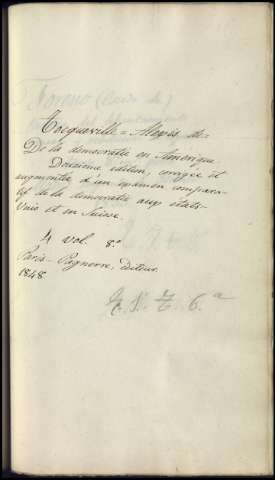 Tocqueville = Alexis de=
De la démocratie en Amérique.
Douzième édition, corrigée et
augmentée d'un examen compara-
tif de la démocratie aux états-
Unis et en Suisse.
4 vol. 8º
Paris- Pagnerre, éditeur.
1848